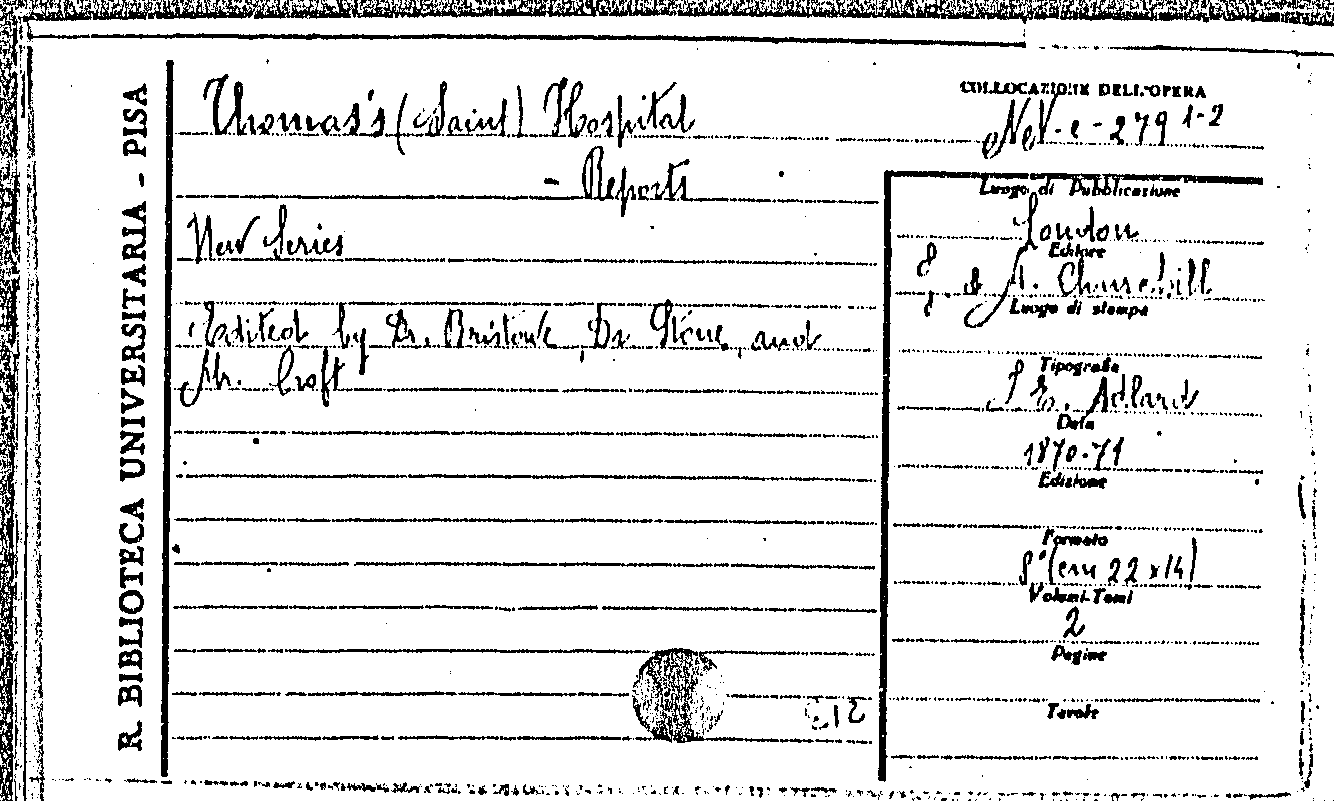 R. BIBLIOTECA UNIVERSITARIA - PISA
Thomas's (Saint) Hospital
- Reports
New Series
Edited by Dr. Bristowe, Dr. Stone, and
Mr. Croft
COLLOCAZIONE DELL'OPERA
279 1-2
Luogo di Pubblicazione
London
Editore
J. & A. Churchill
Luogo di stampa
Tipografia
J. E. Adlard
Data
1870-71
Edizione
Formato
8° (cm 22 x 14)
Volumi-Tomi
2
Pagine
Tavole